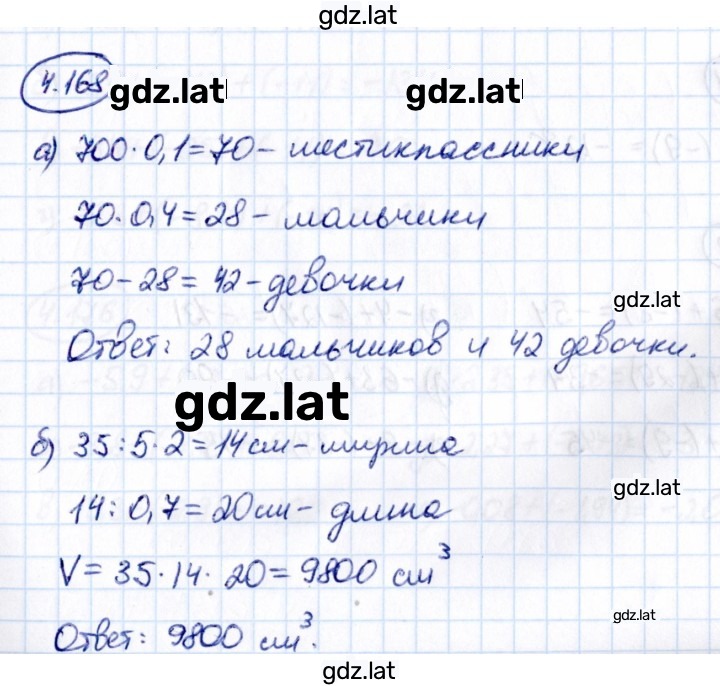 gdz.lat
4.168 gdz.lat gdz.lat
а) 700·0,1=70- шестиклассники
70·0,4=28- мальчики
70-28=42-девочки
gdz.lat
Ответ: 28 мальчиков и 42 девочки.
gdz.lat
б) 35:5·2=14см- ширина
gdz.lat
14:0,7=20см- длина
V=35·14·20=9800 см³
gdz.lat
Ответ: 9800 см³.
gdz.lat